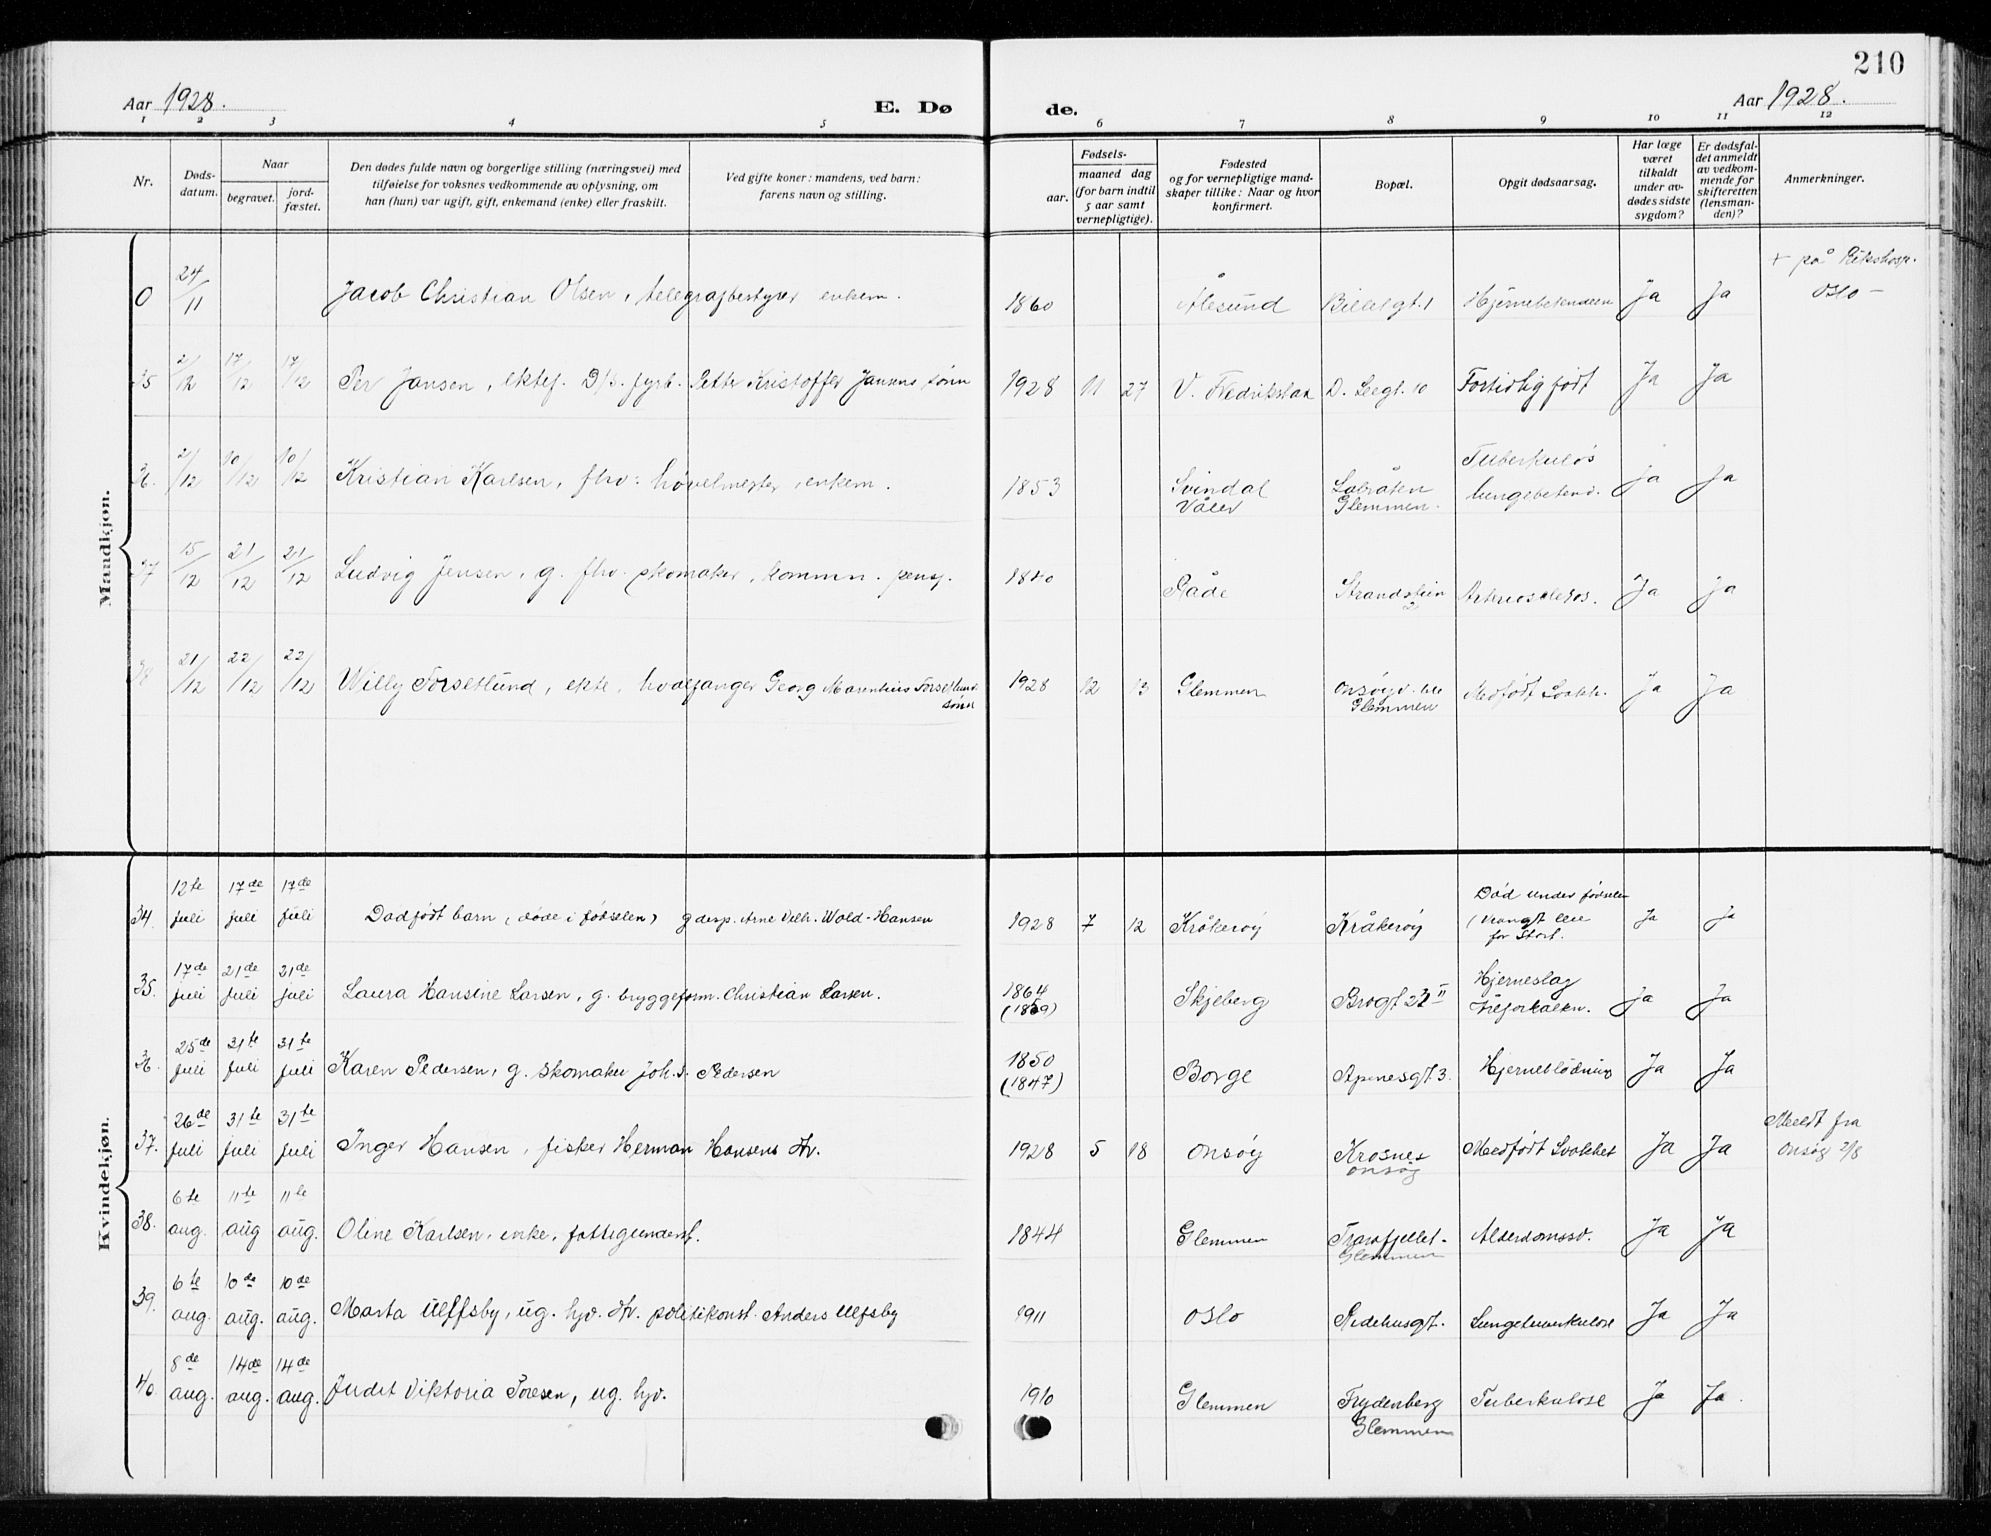 210
Aar 1928.
E. Dø
de.
Aar 1928.
1 2 3 4 5 6 7 8 9 10 11 12
Nr.
Døds-
datum.
Naar
begravet.
jord-
fæstet.
Den dødes fulde navn og borgerlige stilling (næringsvei) med
tilføielse for voksnes vedkommende av oplysning, om
han (hun) var ugift, gift, enkemand (enke) eller fraskilt.
Ved gifte koner: mandens, ved barn:
farens navn og stilling.
Fødsels-
aar.
maaned dag
(for barn indtil
5 aar samt
vernepligtige).
Fødested
og for vernepligtige mand-
skaper tillike: Naar og hvor
konfirmert.
Bopæl.
Opgit dødsaarsag.
Har læge
været
tilkaldt
under av-
dødes sidste
sygdom?
Er dødsfal-
det anmeldt
av vedkom-
mende for
skifteretten
(lensman-
den)?
Anmerkninger.
Mandkjøn.
0 24/11 Jacob Christian Olsen, telegrafbestyrer enkem. 1860 Ålesund Billelgt. 1 Hjernebetendeen Ja Ja + på Rikshosp. Oslo –
35 2/12 17/12 17/12 Per Jansen, ektef. D/s. fyrb. Petter Kristoffer Jansens sønn 1928 11 27 V. Fredrikstad D. Leegt. 10 Fortidlig født Ja Ja
36. 2/12 10/12 10/12 Kristian Karlsen, fhv: høvelmester, enkem. 1853 Svindal Våler Glemmen. Tuberkuløs lungebetend. Ja Ja
37 15/12 21/12 21/12 Ludvig Jensen, g. fhv. skomaker, kommn. pensj. 1840 Råde Strandstien 2 Arterioscleros. Ja Ja
38 21/12 22/12 22/12 Willy Torsetlund, ekte, hvalfanger Georg Marentius Torsetlund sønn 1928 12 13 Glemmen Onsøyv. Glemmen Medfødt Svakh. Ja Ja
Kvindekjøn.
34. 12te juli 17de juli 17de juli Dødfødt barn, (døde i fødselen) g desp. Arne Vilh. Wold-Hansen 1928 7 12 Kråkerøy Kråkerøy Død under fødselen (Vrangt leie for Stort. Ja Ja
35. 17de juli 21de juli 21de juli Laura Hansine Larsen, g. bryggeform. Christian Larsen. 1864 (1859) Skjeberg Brogt 23 II Hjerneslag Åreforkalkn. Ja Ja
36. 25de juli 31te juli 31te juli Karen Pedersen, g. skomaker Joh. S. Pedersen 1850 (1847) Borge Apenesgt 3. Hjerneblødning Ja Ja
37. 26de juli 31te juli 31te juli Inger Hansen, fisker Herman Hansens dtr. 1928 5 18 Onsøy Krosnes Onsøy Medfødt Svakhet Ja Ja Meldt fra Onsøy 2/8
38. 6te aug. 11te aug 11te aug. Oline Karlsen, enke, fattigunderst. 1844 Glemmen Trarafjellet. Glemmen Alderdomssv. Ja Ja
39. 6te aug. 10de aug. 10de aug. Marta Ulffsby, ug. hjv. dtr. politikonst. Anders Ulfsby 1911 Oslo Ridehusgt. Lungetuberkulose Ja Ja
40. 8de aug. 14de aug. 14de aug. Judit Viktoria Toresen, ug. hjv. 1910 Glemmen Frydenberg Glemmen Tuberkulose Ja Ja.